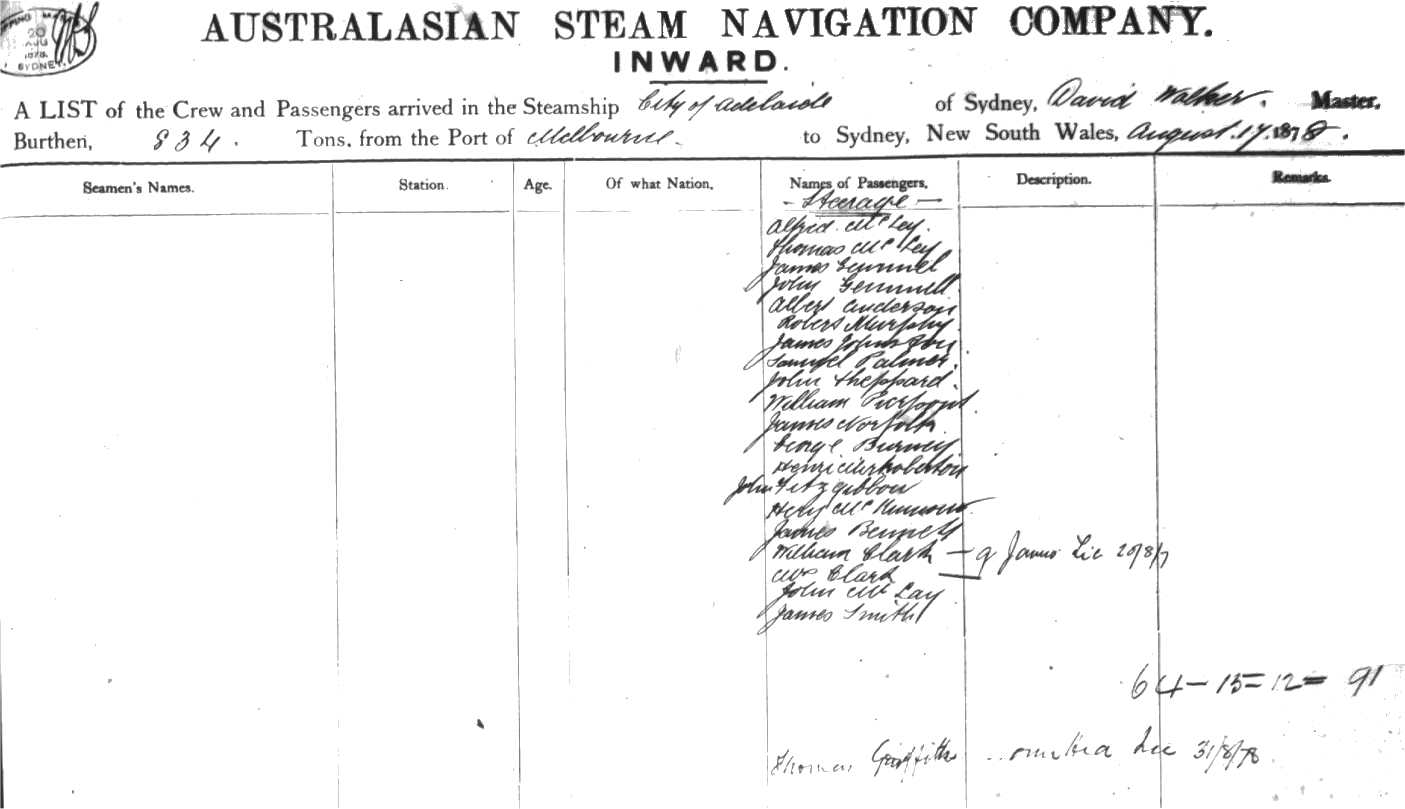 20
AUG
1878
SYDNEY
AUSTRALASIAN STEAM NAVIGATION COMPANY.
INWARD.
A LIST of the Crew and Passengers arrived in the Steamship City of Adelaide of Sydney, David Walker. Master,
Burthen, 834. Tons, from the Port of Melbourne. to Sydney, New South Wales, August. 17. 1878.
Seamen's Names. Station. Age. Of what Nation, Names of Passengers, Description. Remarks.
- Steerage -
Alfred McLey.
Thomas McLey
James Gemmel
John Gemmell
Albert Anderson
Robert Murphy
James Johnston
Samuel Palmer.
John Sheppard.
William Pierpoint
James Norfolk
George Burney
Roberton
John Fitzgibbon
Hery Mc
James Bennett
William Clark - James Lic 20/8/7
Mrs Clark
John McLay
James Smith
64 - 15 = 12 = 91
Thomas Griffiths Lic 31/8/78